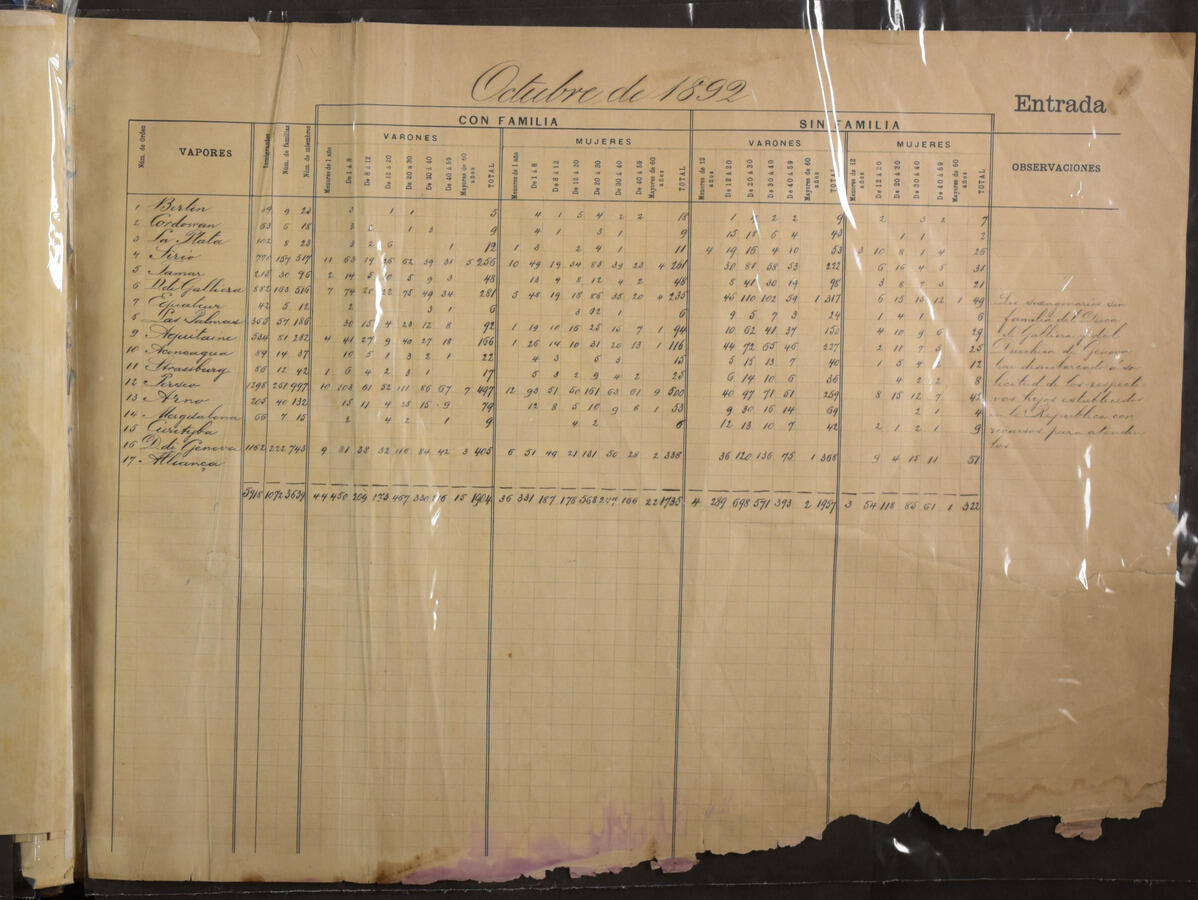 Octubre de 1892
Entrada
CON FAMILIA SIN FAMILIA
VARONES MUJERES VARONES MUJERES
Núm. de Orden VAPORES Inmigrantes Núm. de familias Núm. de miembros Menores de 1 año De 1 á 8 De 8 á 12 De 12 á 20 De 20 á 30 De 30 á 40 De 40 á 59 Mayores de 60 años TOTAL Menores de 1 año De 1 á 8 De 8 á 12 De 12 á 20 De 20 á 30 De 30 á 40 De 40 á 59 Mayores de 60 años TOTAL Menores de 12 años De 12 á 20 De 20 á 30 De 30 á 40 De 40 á 59 Mayores de 60 años TOTAL Menores de 12 años De 12 á 20 De 20 á 30 De 30 á 40 De 40 á 59 Mayores de 60 años TOTAL OBSERVACIONES
1 Berlin 9 23 3 1 1 5 4 1 5 4 2 2 18 1 2 2 9 2 3 2 7
2 Cordouan 63 6 18 1 3 9 4 1 3 1 9 15 18 6 4 43 1 1 2
3 La Plata 102 8 23 3 2 6 1 12 1 3 2 4 1 11 4 19 16 4 10 53 3 10 8 1 4 26
4 Sirio 770 157 517 11 63 19 62 39 31 5 256 10 49 19 34 83 39 23 4 261 30 81 58 53 222 6 16 4 5 31
5 30 96 2 14 5 10 5 9 3 48 13 9 8 12 4 2 48 8 41 30 19 98 3 8 7 3 21
6 D. de Galliera 882 163 516 7 74 20 22 75 49 34 281 5 48 19 18 86 35 20 4 235 45 110 102 59 1 317 6 15 13 12 1 49
7 Equateur 42 5 12 2 3 1 6 3 2 1 6 9 5 7 3 24 1 4 1 6
8 Las Palmas 365 57 186 30 15 4 23 12 8 92 1 19 10 16 25 15 7 1 94 10 62 41 37 150 4 10 9 6 29
9 Aquitaine 534 81 282 4 41 27 9 40 27 18 166 1 26 14 10 31 20 13 1 116 44 72 65 46 227 2 11 7 5 25
10 Aconcagua 89 14 37 10 5 1 3 2 1 22 4 3 5 3 15 5 15 13 7 40 1 5 4 2 12
11 Strassburg 86 12 42 1 6 4 2 3 1 17 5 3 2 9 4 2 25 6 14 10 6 36 4 2 2 8
12 Perseo 1298 261 997 10 103 61 52 111 86 67 7 497 12 93 51 50 161 63 61 9 500 40 97 71 51 259 8 15 12 7 42
13 Arno 205 40 132 15 11 4 25 15 9 79 12 8 5 10 9 6 1 53 9 30 16 14 69 2 1 4
14 Magdalena 66 7 15 2 4 2 1 9 4 2 6 12 13 10 7 42 2 1 2 1 9
15 Curityba
16 D. di Genova 1162 222 743 9 81 38 32 116 84 42 3 405 6 51 49 21 131 50 28 2 338 36 120 136 75 1 368 9 4 15 11 51
17 Aliança
5918 1072 3639 44 450 209 173 467 330 216 15 1904 36 331 187 176 568 247 166 22 1735 4 289 698 571 393 2 1957 3 54 118 85 61 1 322
Los sexagenarios sin
familia del Duca
di Galliera y del
Duchesa de Genova
han desembarcado a so
licitud de los respecti
vos hijos establecidos
en la República con
recursos para atender
los